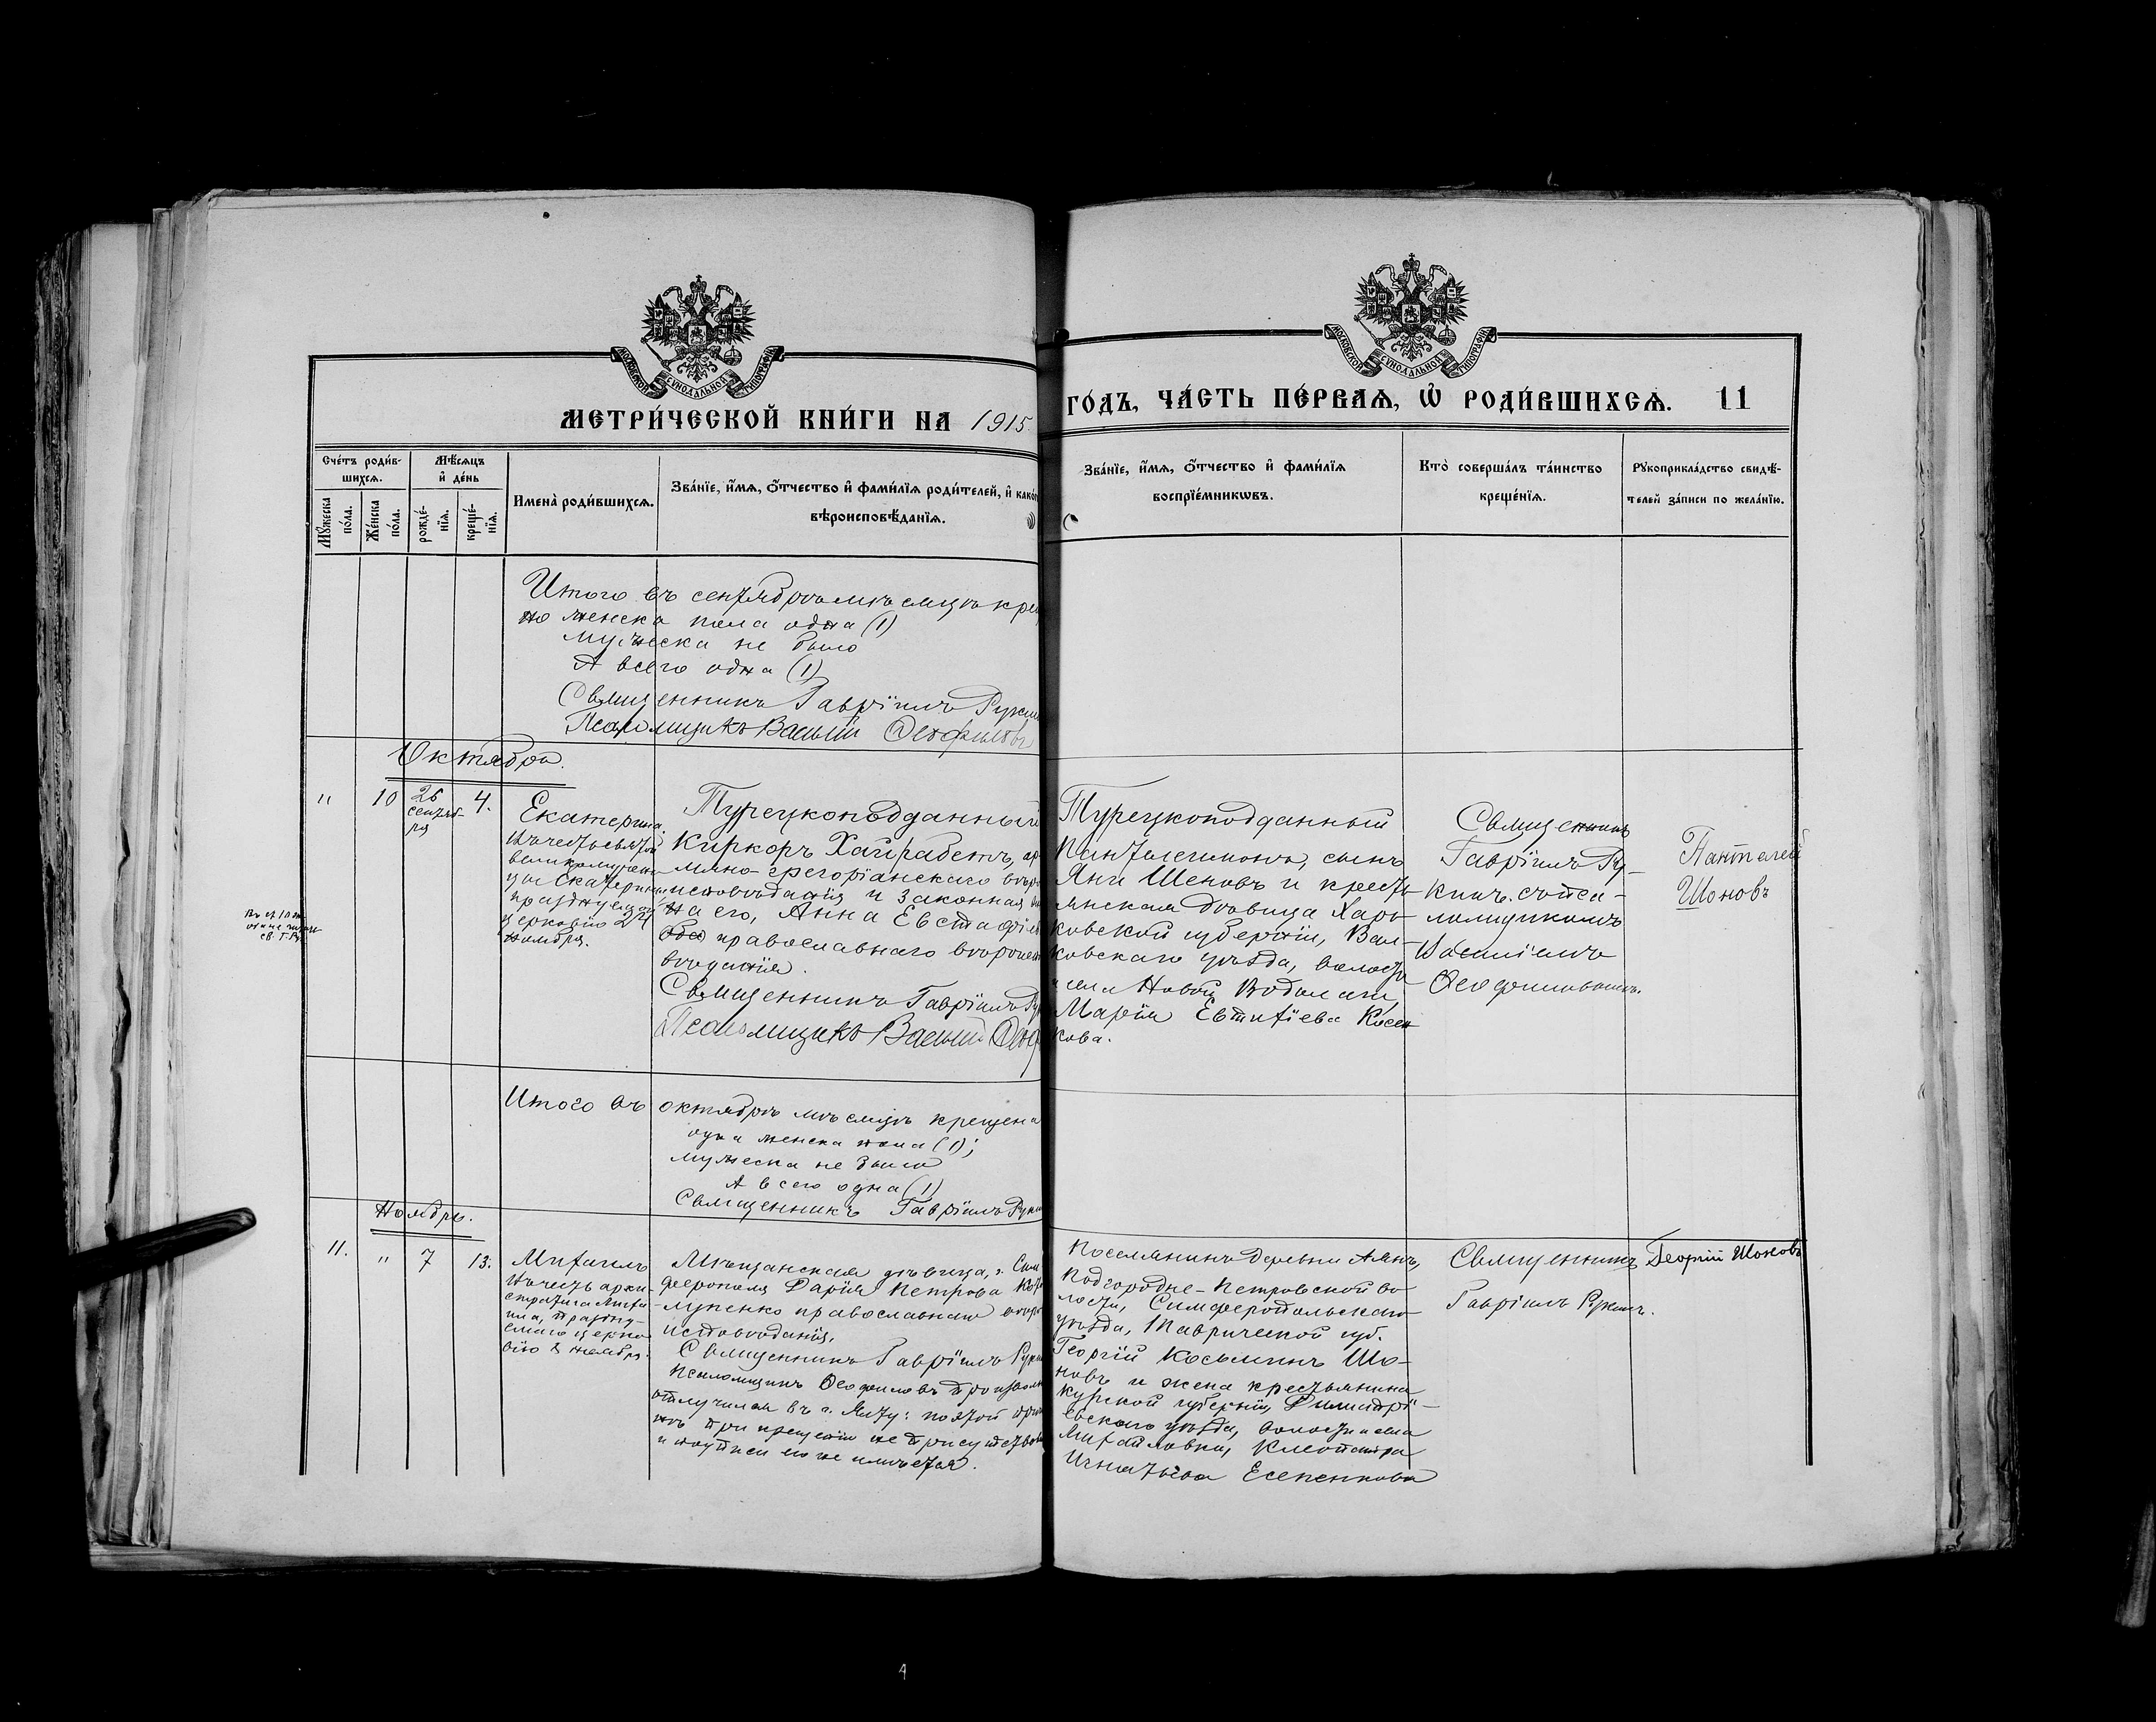 МОСКОВСКОЙ СУНОДАЛЬНОЙ ТИПОГРАФІИ
МОСКОВСКОЙ СУНОДАЛЬНОЙ ТИПОГРАФІИ
МЕТРИ́ЧЕСКОЙ КНИ́ГИ НА 1915
ГО́ДЪ, ЧА́СТЬ ПЕ́РВАѦ, Ѡ РОДИ́ВШИХСѦ. 11
Сче́тъ роди́в-
шихсѧ.
Мꙋжеска по́ла.
Же́нска по́ла.
Мѣ́сѧцъ
и҆ де́нь
рожде́-
нїѧ.
креще́-
нїѧ.
Имена̀ роди́вшихсѧ.
Зва́нїе, и҆́мѧ, ѻ҆́тчество и҆ фами́лїѧ роди́телей, и҆ како́г
вѣроисповѣ́данїѧ.
Зва́нїе, и҆́мѧ, ѻ҆́тчество и҆ фами́лїѧ
воспрїе́мникѡвъ.
Кто̀ соверша́лъ та́инство
креще́нїѧ.
Рꙋкоприкла́дство свидѣ́-
телей за́писи по жела́нїю.
Итого въ сентябрѣ мѣсяцѣ кре
но женска пола одна (1)
мужеска не было
А всего одна (1)
Священникъ Гавріилъ Рукин
Псаломщикъ Василій Ѳеофиловъ
Октябрь.
" 10 26 4.
сентяб-
ря
Екатерина.
Въ честь святой
великомучени-
цы Екатерины
празднуемой
церковію 24
ноября.
Турецкоподданный
Киркоръ Хайрабетъ, ар
мяно-грегоріанскаго вѣро
исповѣданія и законная
на его, Анна Евстафіе
православнаго вѣроиспо
вѣданія.
Священникъ Гавріилъ Ру
Псаломщикъ Василій Ѳеоф
Турецкоподданный
Пантелеимонъ, сынъ
Яни Шоновъ и кресть-
янская дѣвица Харь-
ковской губерніи, Вал-
ковскаго уѣзда, волости
и села Новой Водолаги,
Марія Евтихіева Косен
кова.
Священникъ
Гавріилъ Ру-
кинъ съ пса-
ломщикомъ
Василіемъ
Ѳеофиловымъ.
Пантелей
Шоновъ
св. Г. Ру.
Итого въ октябрѣ мѣсяцѣ крещена
одна женска пола (1);
мужеска не было
А всего одна (1)
Священникъ Гавріилъ Рукин
Ноябрь.
11. " 7 13.
Михаилъ
Въ честь архи-
стратига Миха-
ила, праздну-
емаго церко-
вію 8 ноября.
Мѣщанская дѣвица, г. Сим
ферополя Дарія Петрова Ко
лупенко православнаго вѣро
исповѣданія.
Священникъ Гавріилъ Руки
Псаломщикъ Ѳеофиловъ произволь
отлучился въ г. Ялту: поэтой при
нѣ при крещеніи не присутствова
и подписи его не имѣется.
Поселянинъ деревни Аянъ,
Подгородне-Петровской во-
лости, Симферопольскаго
уѣзда, Таврической губ.
Георгій Косьминъ Шо-
новъ и жена крестьянина
Курской губерніи, Димитрі-
евскаго уѣзда, волости и села
Михайловки, Клеопатра
Игнатьева Есепенкова
Священникъ
Гавріилъ Рукинъ.
Георгій Шоновъ
4